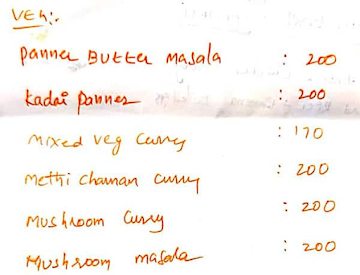 VEG:.
Panner Butter masala : 200
Kadai Panner : 200
mixed veg curry : 170
Methi chaman curry : 200
Mushroom curry : 200
Mushroom masala : 200